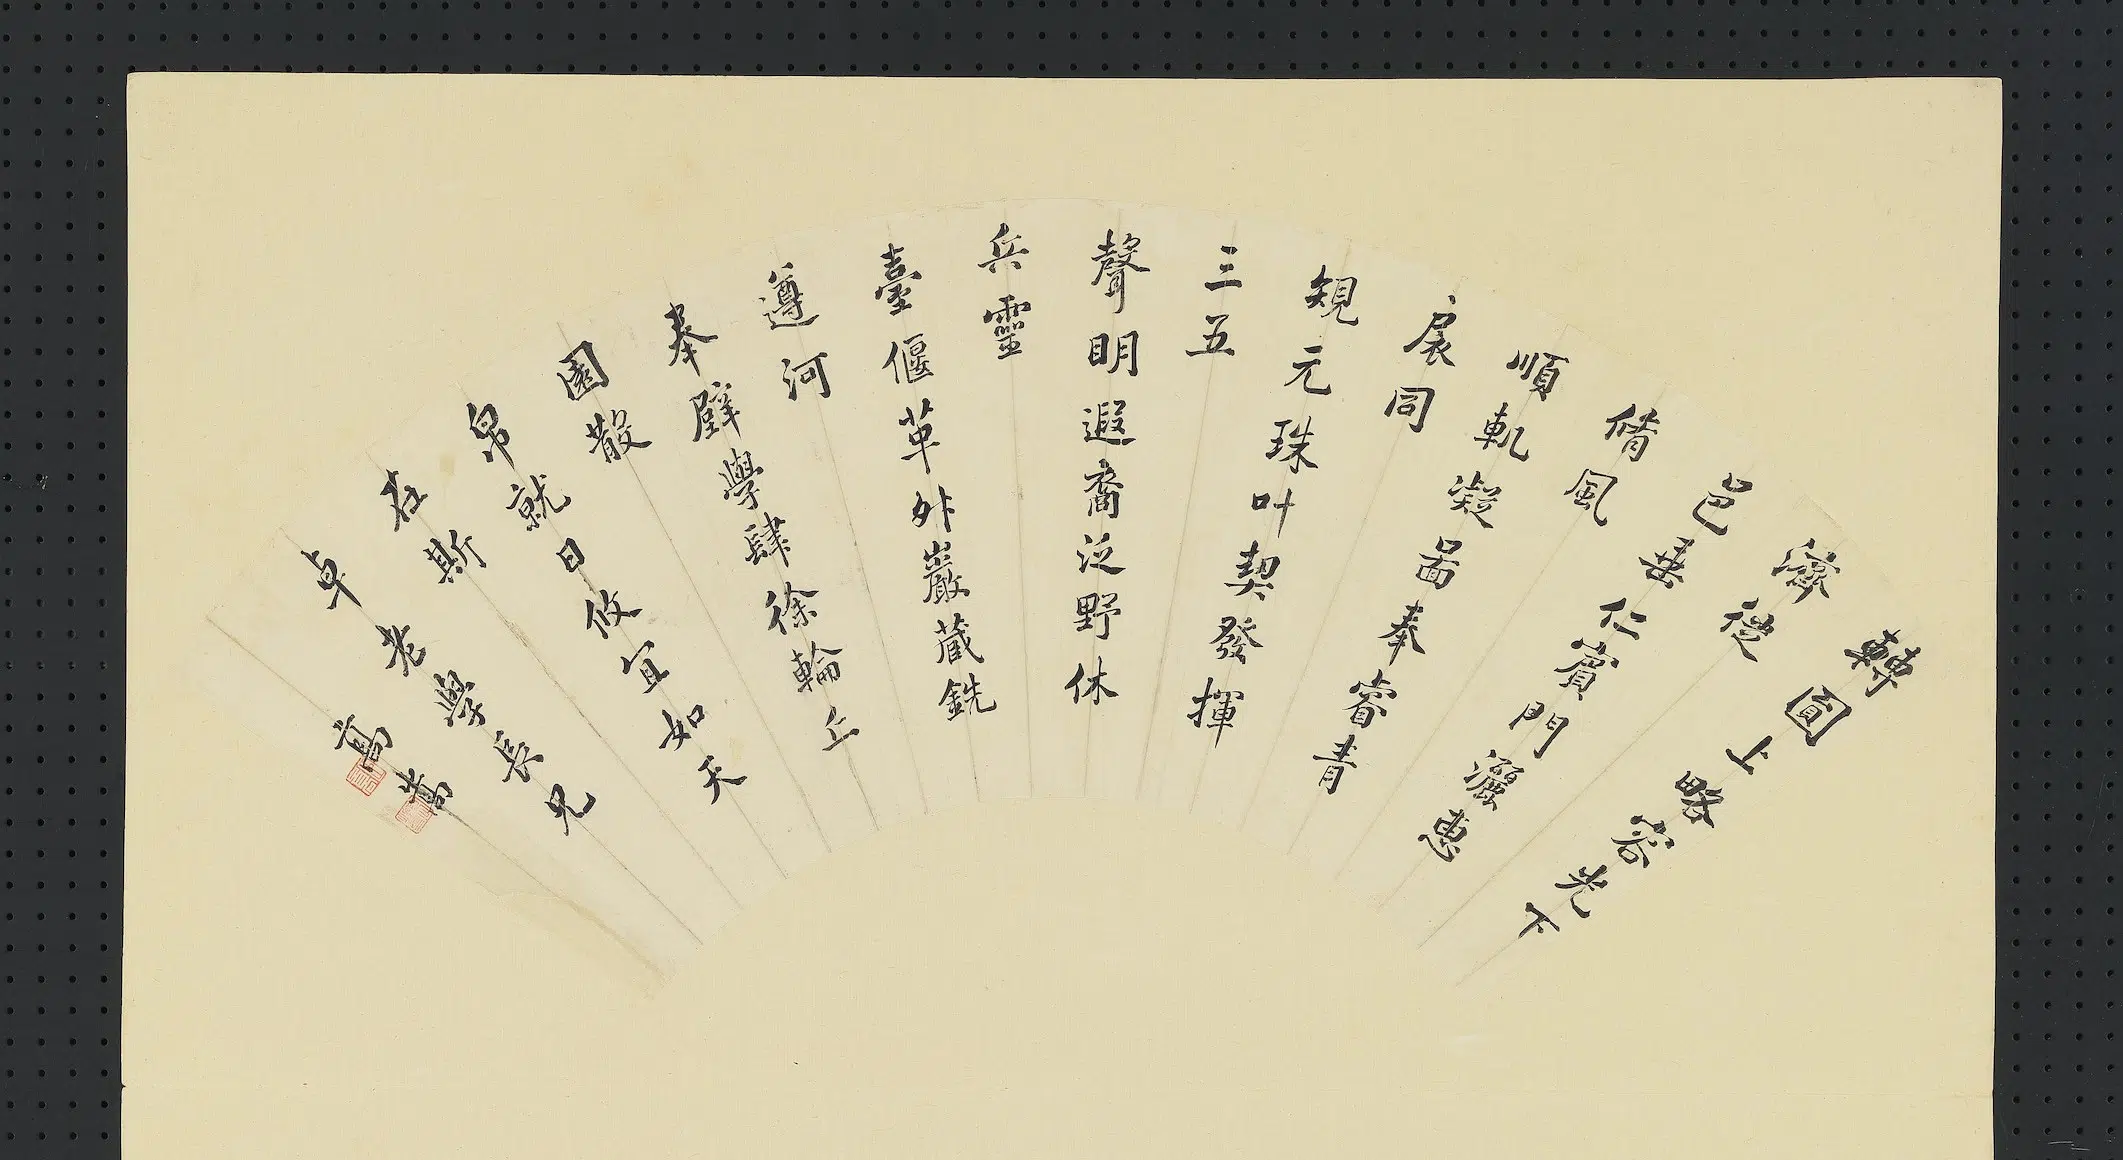 轉圓上略容光下
濟從
邑垂仁賓門灑惠
脩風
順軌凝圖奉睿青
扆同
規元珠叶契發揮
三五
聲明遐裔泛野休
兵靈
臺偃革外巖藏銑
遵河
奉璧學肆徐輪丘
園散
帛就日攸宜如天
在斯
卓老學長兄
高嵩